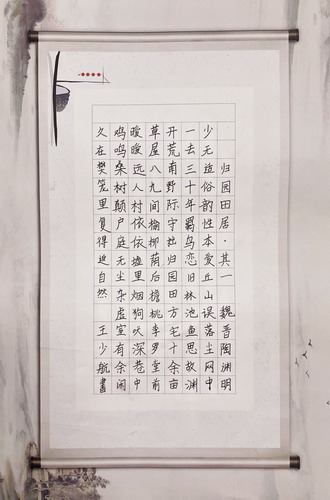 归园田居·其一 魏晋陶渊明
少无适俗韵性本爱丘山误落尘网中
一去三十年羁鸟恋旧林池鱼思故渊
开荒南野际守拙归园田方宅十余亩
草屋八九间榆柳荫后檐桃李罗堂前
暧暧远人村依依墟里烟狗吠深巷中
鸡鸣桑树颠户庭无尘杂虚室有余闲
久在樊笼里复得返自然 王少航書